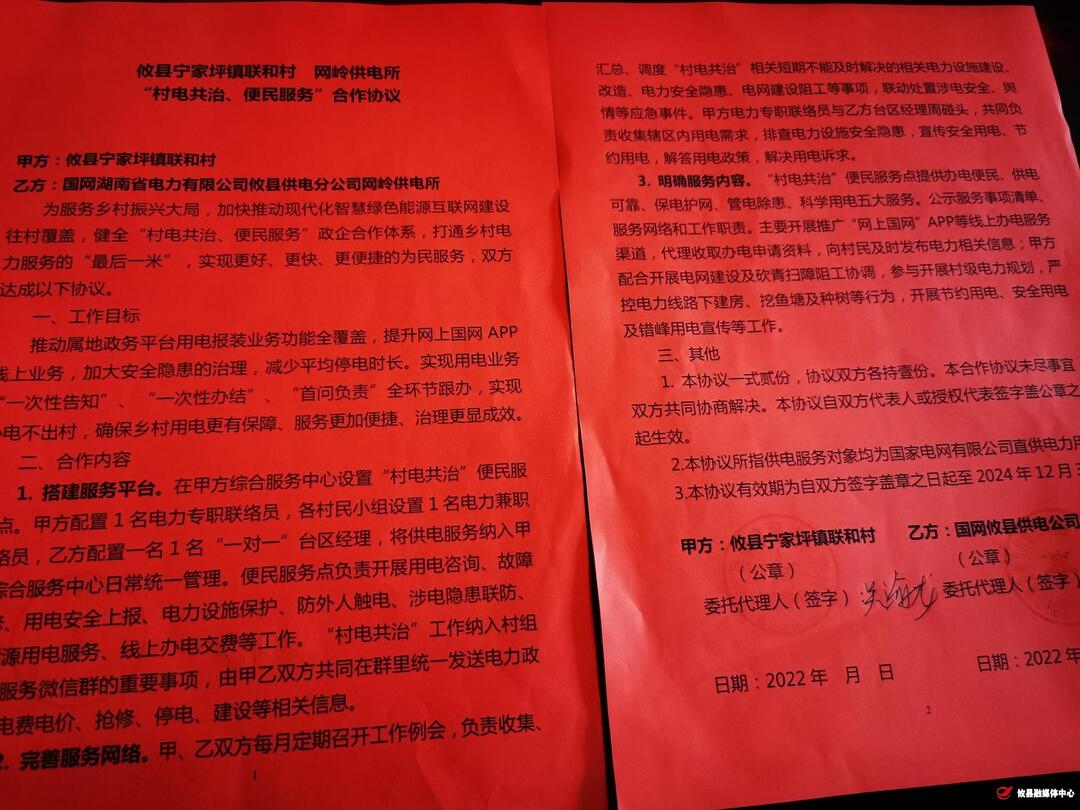 攸县宁家坪镇联和村 网岭供电所
“村电共治、便民服务”合作协议
甲方：攸县宁家坪镇联和村
乙方：国网湖南省电力有限公司攸县供电分公司网岭供电所
为服务乡村振兴大局，加快推动现代化智慧绿色能源互联网建设
往村覆盖，健全“村电共治、便民服务”政企合作体系，打通乡村电
力服务的“最后一米”，实现更好、更快、更便捷的为民服务，双方
达成以下协议。
一、工作目标
推动属地政务平台用电报装业务功能全覆盖，提升网上国网 APP
线上业务，加大安全隐患的治理，减少平均停电时长。实现用电业务
“一次性告知”、“一次性办结”、“首问负责”全环节跟办，实现
办电不出村，确保乡村用电更有保障、服务更加便捷、治理更显成效。
二、合作内容
1. 搭建服务平台。在甲方综合服务中心设置“村电共治”便民服
点。甲方配置 1 名电力专职联络员，各村民小组设置 1 名电力兼职
络员，乙方配置一名 1 名“一对一”台区经理，将供电服务纳入甲
综合服务中心日常统一管理。便民服务点负责开展用电咨询、故障
、用电安全上报、电力设施保护、防外人触电、涉电隐患联防、
源用电服务、线上办电交费等工作。“村电共治”工作纳入村组
服务微信群的重要事项，由甲乙双方共同在群里统一发送电力政
电费电价、抢修、停电、建设等相关信息。
2. 完善服务网络。甲、乙双方每月定期召开工作例会，负责收集、
1
汇总、调度“村电共治”相关短期不能及时解决的相关电力设施建设、
改造、电力安全隐患、电网建设阻工等事项，联动处置涉电安全、舆
情等应急事件。甲方电力专职联络员与乙方台区经理周碰头，共同负
责收集辖区内用电需求，排查电力设施安全隐患，宣传安全用电、节
约用电，解答用电政策，解决用电诉求。
3. 明确服务内容。“村电共治”便民服务点提供办电便民、供电
可靠、保电护网、管电除患、科学用电五大服务。公示服务事项清单、
服务网络和工作职责。主要开展推广“网上国网”APP等线上办电服务
渠道，代理收取办电申请资料，向村民及时发布电力相关信息；甲方
配合开展电网建设及砍青扫障阻工协调，参与开展村级电力规划，严
控电力线路下建房、挖鱼塘及种树等行为，开展节约用电、安全用电
及错峰用电宣传等工作。
三、其他
1. 本协议一式贰份，协议双方各持壹份。本合作协议未尽事宜
双方共同协商解决。本协议自双方代表人或授权代表签字盖公章之
起生效。
2.本协议所指供电服务对象均为国家电网有限公司直供电力用
3.本协议有效期为自双方签字盖章之日起至 2024 年 12 月 3
甲方：攸县宁家坪镇联和村 乙方：国网攸县供电公司
（公章） （公章）
委托代理人（签字） 委托代理人（签字）
日期：2022 年 月 日 日期：2022 年
2
攸县融媒体中心